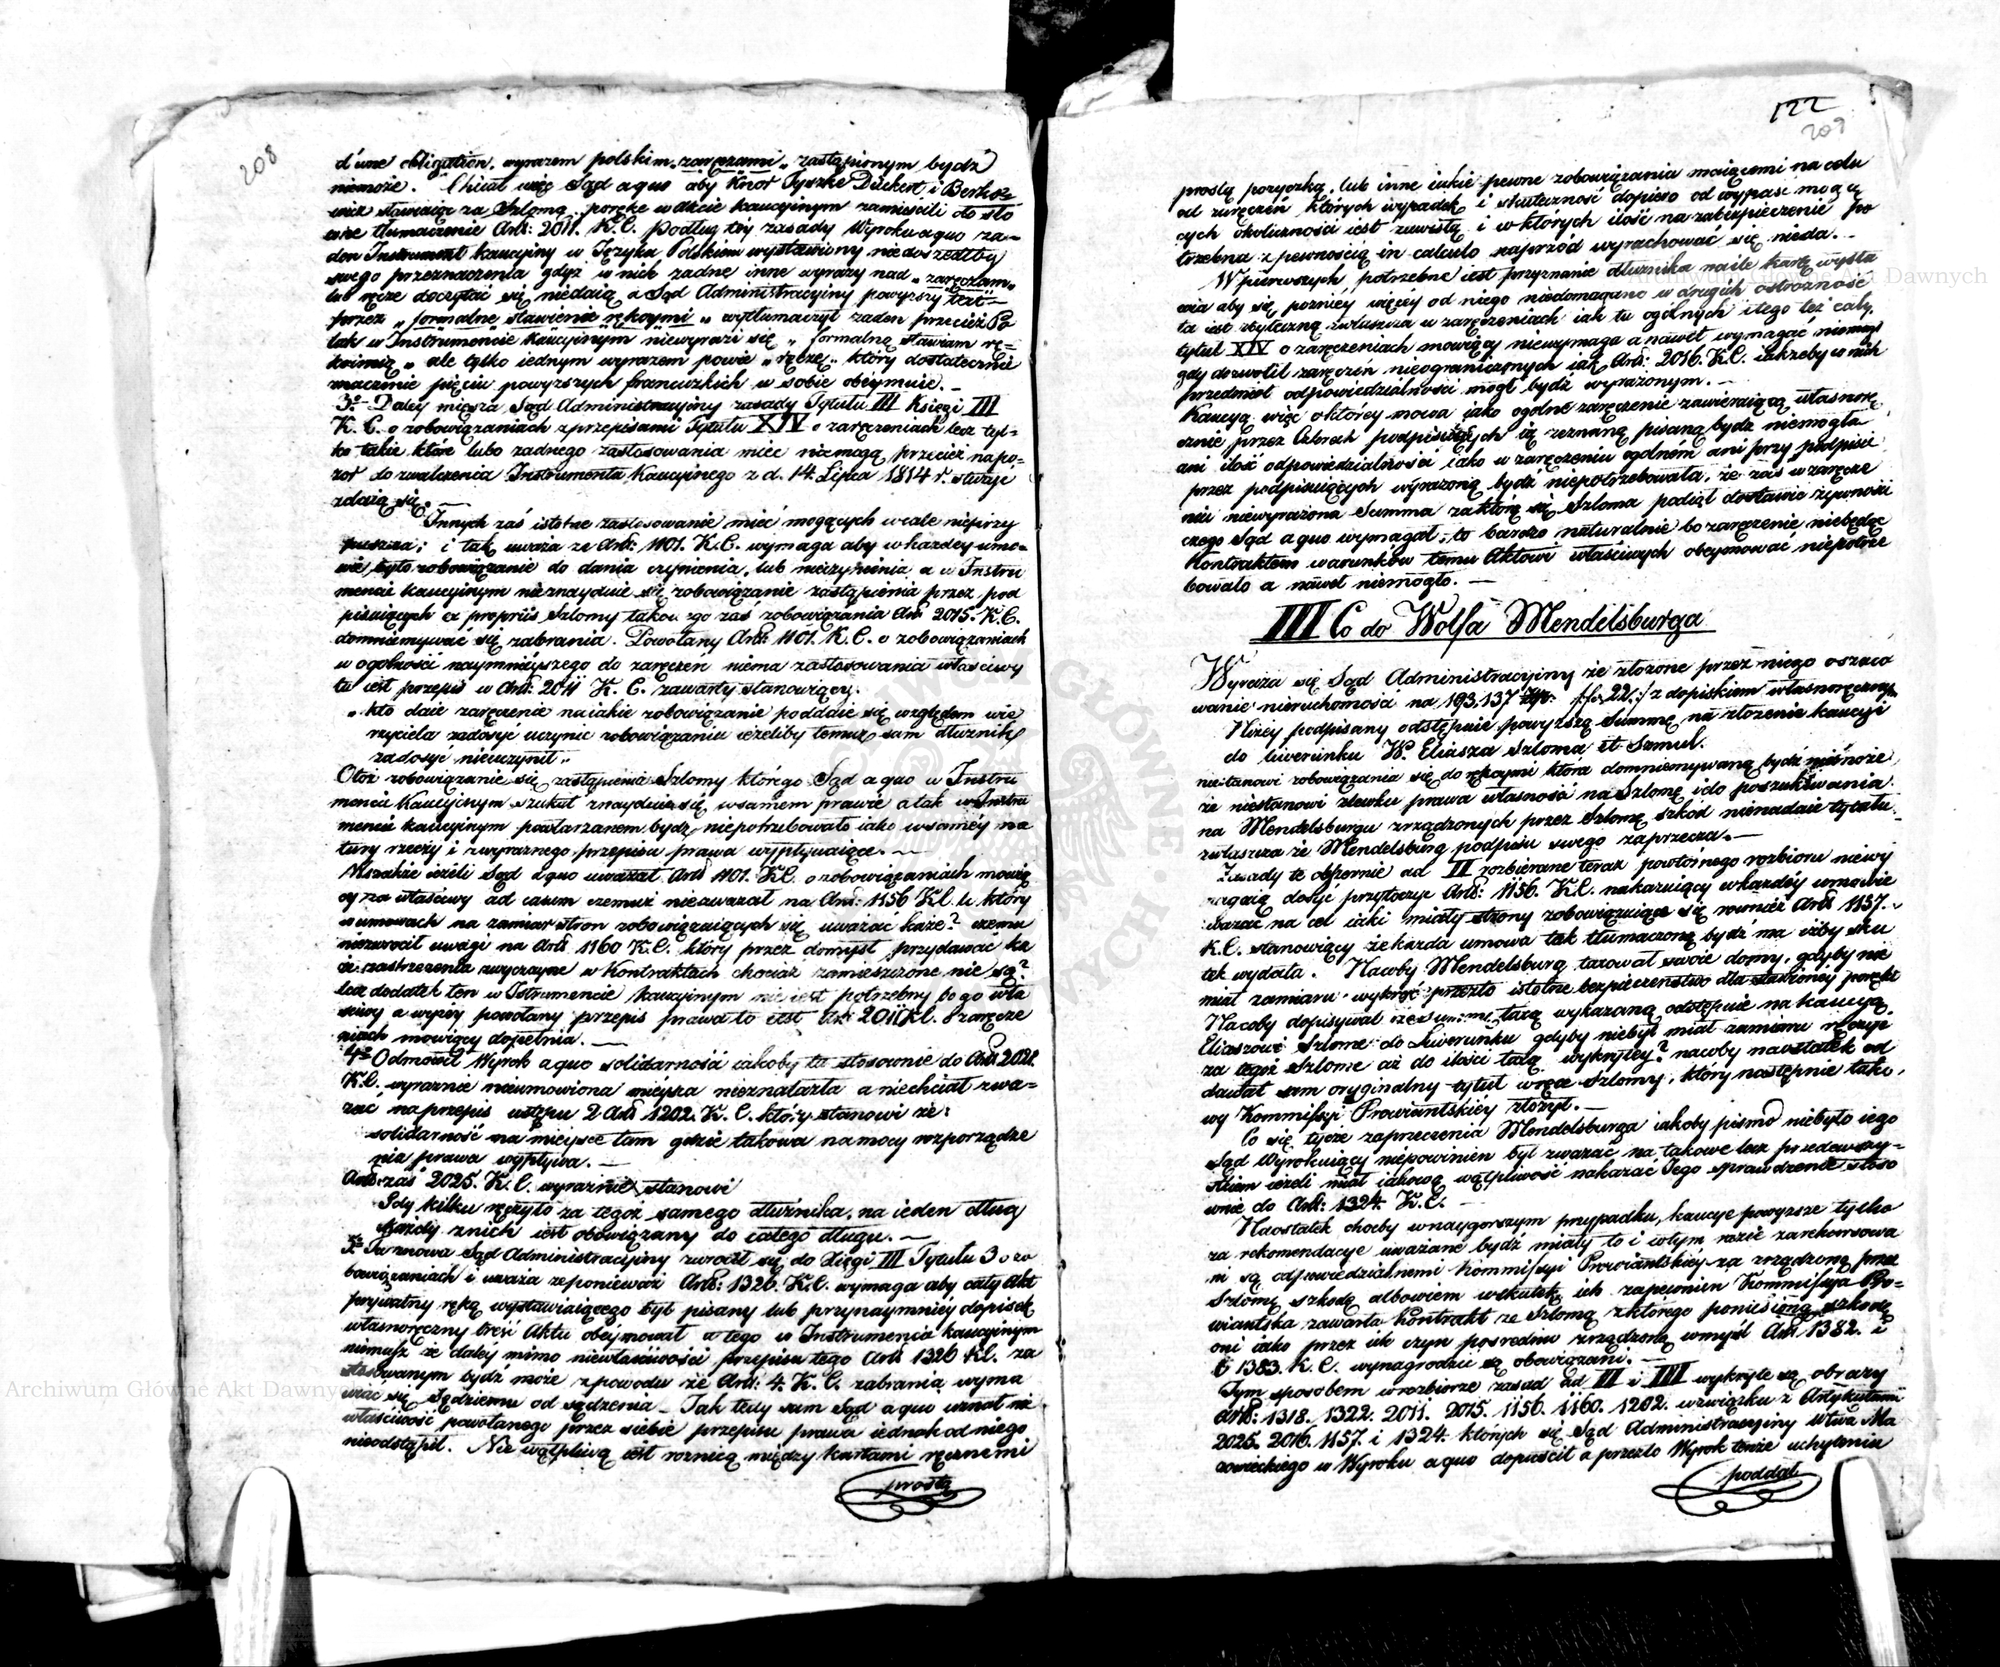 208
d'une obligation, wyrazem polskim „zaręczami„ zastąpionym bydź
niemoże. Chciał więc Sąd a quo aby Knot Tyszke Dückert i Berko=
wicz stawaiąc za Szlomą poręke w akcie kaucyinym zamieścili do sło
wne tłumaczenie Artu: 2011. K.C. podług téy zasady Wyroku a quo ża=
den Instrument kaucyiny w Języku Polskim wystawiony niedoszedłby
swego przeznaczenia gdyż w nich żadne inne wyrazy nad „zaręczam„
lub ręcze doczytać się niedaią a Sąd Administracyiny powyższy text
przez „formalne stawienie rękoymi„ wytłumaczył żaden przecież Po
lak w Instrumencie kaucyinym niewyrazi się „formalną stawiam rę=
koimią„ ale tylko iednym wyrazem powie „ręczę„ który dostatecznie
znaczenie pięciu powyższych francuzkich w sobie obeymuie. –
3o– Daley miesza Sąd Administracyiny zasady Tytułu III Księgi III
K. C. o zobowiązaniach z przepisami Tytułu XIV o zaręczeniach lecz tyl=
ko takie które lubo żadnego zastosowania mieć niemogą przecież na po=
zór do zwalczenia Instrumentu Kaucyinego z d. 14. Lipca 1814 r. służyć
zdaią się. –
Innych zaś istotne zastosowanie mieć mogących wcale nieprzy
puszcza; i tak uważa że Artu: 1101. K.C. wymaga aby w każdey umo=
wie było zobowiązanie do dania czynienia, lub nieczynienia a w Instru
mencie kaucyinym nieznayduie się zobowiązanie zastąpienia przez pod
pisuiących ex propriis Szlomy takowego zaś zobowiązania Artu 2015. K.C.
domniemywać się zabrania. Powołany Artu: 1101. K.C. o zobowiązaniach
w ogolności naymnieyszego do zaręczeń niema zastosowania właściwy
tu iest przepis w Artu: 2011 K. C. zawarty stanowiący.
„kto daie zaręczenie na iakie zobowiązanie poddaie się względem wie
rzyciela zadosyć uczynić zobowiązaniu ieżeliby temuż sam dłużnik
zadosyć nieuczynił„
Otóż zobowiązanie się zastąpienia Szlomy którego Sąd a quo w Instru
mencie Kaucyinym szukał znayduie się w samem prawie a tak w Instru
mencie kaucyinym powtarzanem bydź niepotrzebowało iako w saméy na
tury rzeczy i z wyraznego przepisu prawa wypływaiące. –
Wszakże ieżeli Sąd a quo uważał Artu 1101. K.C. o zobowiązaniach mówią
cy za właściwy ad casum czemuż nieuważał na Artu: 1156 K.C. który
w umowach na zamiar stron zobowiązuiących się uważać każe? czemu
niezwrocił uwagi na Artu 1160 K.C. który przez domysł przydawać ka
że zastrzeżenia zwyczayne w Kontraktach chociaż zamieszczone nie są?
lecz dodatek ten w Istrumencie kaucyinym nie iest potrzebny bo go wła
ściwy a wyżey powołany przepis prawa to iest Art 2011 K.C. o zaręcze
niach mówiący dopełnia. –
4o Odmówił Wyrok a quo solidarność iakoby ta stosownie do Artu 2021.
K.C. wyraznie nieumowiona mieysca nieznalazła a niechciał zwa=
żać na przepis ustępu 2 Artu 1202. K. C. który stanowi że:
solidarność ma mieysce tam gdzie takowa na mocy rozporządze
nia prawa wypływa. –
Artu: zaś 2025. K.C. wyraznie stanowi
Gdy kilku ręczyło za tegoż samego dłużnika, na ieden dług
każdy z nich iest obowiązany do całego długu. –
5o Tu znowu Sąd Administracyiny zwrocił się do Xięgi III Tytułu 3 o zo
bowiązaniach i uważa że ponieważ Artu: 1326. K.C. wymaga aby cały Akt
prywatny ręką wystawiaiącego był pisany lub przynaymniéy dopisek
własnoręczny treść Aktu obeymował a tego w Instrumencie kaucyinym
niemasz że daléy mimo niewłaściwości przepisu tego Artu 1326 K.C. za
stosowanym bydź może z powodu że Artu: 4. K. C. zabrania wyma
wiać się Sędziemu od sądzenia – Tak tedy sam Sąd a quo uznał nie
właściwość powołanego przez siebie przepisu prawa iednak od niego
nieodstąpił. Nie wątpliwą iest roznicą między kartami ręcznemi
prostą
122
209
prostą pożyczką, lub inne iakie pewne zobowiązania maiącemi na celu
od zaręczeń których wypadek i skuteczność dopiero od wypaść mogą
cych okoliczności iest zawisłą i w których ilość na zabezpieczenie po
trzebna z pewnością in calculo naprzód wyrachować się nieda. –
W pierwszych, potrzebne iest przyznanie dłużnika na ile kartę wysta
wia aby się poźniey więcey od niego niedomagano w drugich ostrożność
ta iest zbyteczną zwłaszcza w zaręczeniach iak tu ogolnych i tego też cały
tytuł XIV o zaręczeniach mowiący niewymaga a nawet wymagać niemógł
gdy dozwolił zaręczeń nieograniczonych iak Artu: 2016. K.C. iakżeby w nich
przedmiot odpowiedzialności mógł bydź wyrażonym. –
Kaucya więc o któréy mowa iako ogolne zaręczenie zawieraiąca własnorę
cznie przez Osob podpisuiących ią zeznaną pisaną bydź niemogła
ani ilość odpowiedzialności iako w zaręczeniu ogolném ani przy podpisie
przez podpisuiących wyrażoną bydź niepotrzebowała, że zaś w zaręcze
niu niewyrażona Summa za którą się Szloma podiął dostawić żywności
czego Sąd a quo wymagał, to bardzo naturalnie bo zaręczenie niebędąc
Kontraktem warunków temu Aktowi właściwych obeymować niepotrze
bowało a nawet niemogło. –
III Co do Wolfa Mendelsburga
Wyraża się Sąd Administracyiny że złożone przez niego oszaco
wanie nieruchomości na 193.137 Złp. f. fr. 22.:/ z dopiskiem własnoręcznym
Niżéy podpisany odstępuie powyższą Summę na złożenie kaucyi
do liwerunku W. Eliasza Szloma et Szmul.
niestanowi zobowiązania się do rękoymi która domniemywaną bydź niémoże,
że niestanowi zlewku prawa własności na Szlomę i do poszukiwania
na Mendelsburgu zrządzonych przez Szlomę szkód nienadaie tytułu
zwłaszcza że Mendelsburg podpisu swego zaprzecza. –
Zasady te obszernie ad II rozbierane teraz powtórnego rozbioru niewy
magaią dosyć przytoczyć Artu: 1156. K.C. nakazuiący w każdéy umowie
zważać na cel iaki miały strony zobowiązuiące się rownież Artu 1157.
K.C. stanowiący że każda umowa tak tłumaczoną bydź ma iżby sku
tek wydała. Nacoby Mendelsburg taxował swoie domy, gdyby nie
miał zamiaru wykryć przez to istotne bezpieczeństwo dla stawionéy poręki
Nacoby dopisywał że summę taxą wykazaną odstępuie na kaucyą
Eliaszowi Szlomie do Liwerunku gdyby niebył miał zamiaru ręczyć
za tegoż Szlomie aż do ilości taxą wykrytey? nacoby nawstałek od
dawał sam oryginalny tytuł w ręce Szlomy, który następnie tako,
wy Kommissyi Prowiantskiéy złożył. –
Co się tycze zaprzeczenia Mendelsburga iakoby pismo niebyło iego
Sąd Wyrokuiący niepowinien był zważać na takowe lecz przedewszy=
stkiem ieżeli miał iakową wątpliwość nakazać Jego sprawdzenie stoso
wnie do Artu: 1324. K.C. –
Naostatek choćby w naygorszym przypadku, kaucye powyższe tylko
za rekomendacye uważane bydź miały to i wtym razie zarekomowa
ni są odpowiedzialnemi Kommissyi Prowiantskiéy za zrządzoną przez
Szlomę szkodę albowiem wskutek ich zapewnień Kommissya Pro=
wiantska zawarła Kontrakt ze Szlomą z którego poniesioną szkodę
oni iako przez ich czyn pośrednio zrządzoną w myśl Artu 1382. i
1383. K. C. wynagrodzić są obowiązani. –
Tym sposobem w rozbiorze zasad ad II i III wykryte są obrazy
Artu: 1318. 1322. 2011. 2015. 1156. 1160. 1202. w związku z Artykułami
2025. 2016. 1157. i 1324. których się Sąd Administracyiny Wtwa Ma
zowieckiego w Wyroku a quo dopuścił a przezto Wyrok tenże uchyleniu
poddał